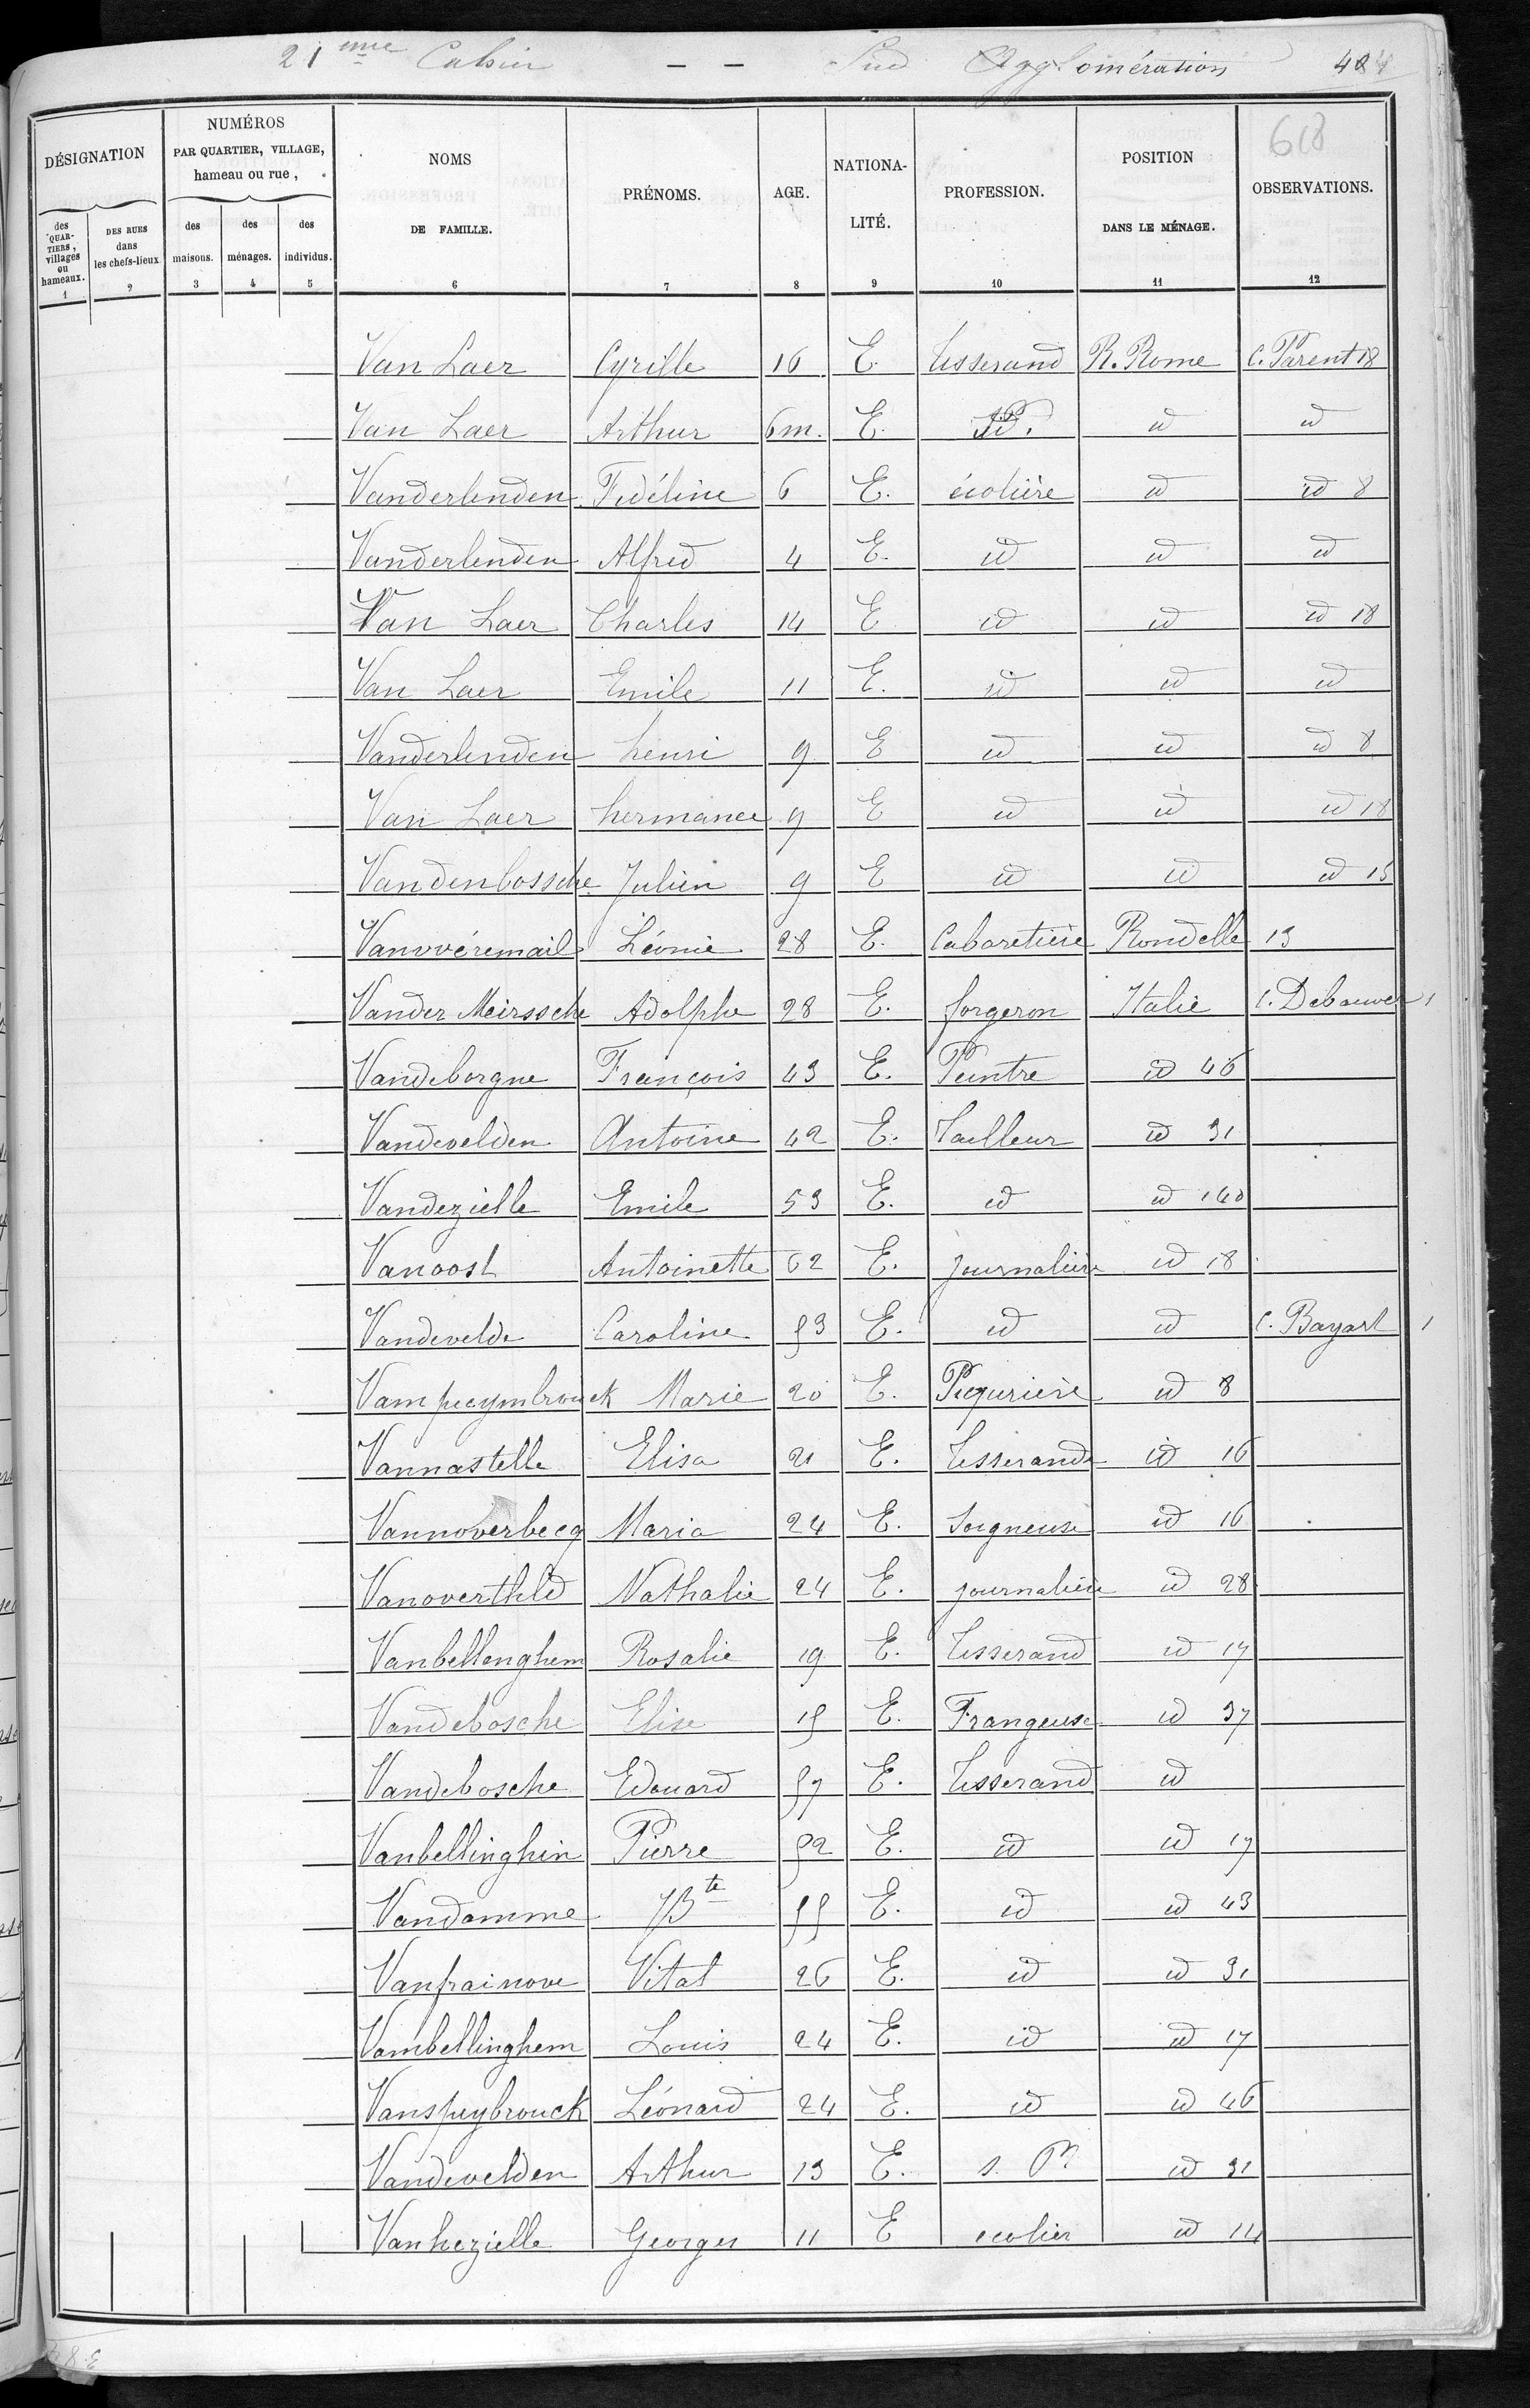 21 me Cahier - - Sud Agglomération 404
618
DÉSIGNATION
des QUARTIERS, villages ou hameaux. 1
DES RUES dans les chefs-lieux 2
NUMÉROS PAR QUARTIER, VILLAGE, hameau ou rue,
des maisons. 3
des ménages. 4
des individus. 5
NOMS DE FAMILLE. 6
PRÉNOMS. 7
AGE. 8
NATIONALITÉ. 9
PROFESSION. 10
POSITION DANS LE MÉNAGE. 11
OBSERVATIONS. 12
Van Laer Cyrille 16 E. Tisserand R. Rome C. Parent 18
Van Laer Arthur 6m. E. id id
Vanderlinden Fidéline 6 E. écolière id id 8
Vanderlinden Alfred 4 E. id id id
Van Laer Charles 14 E id id id 18
Van Laer Emile 11 E. id id id
Vanderlinden henri 9 E id id id 8
Van Laer hermance 9 E id id id 18
Vandenbossche Julien 9 E id id id 15
Vanwéremail Léonie 28 E. Cabaretière Rondelle 13
Vander Meirssche Adolphe 28 E. forgeron Italie C. Debauver 1
Vandeborgne François 43 E. Peintre id 46
Vandevelden Antoine 42 E. Tailleur id 31
Vandezielle Emile 53 E. id id 140
Vanoost Antoinette 62 E. journalière id 18
Vandevelde Caroline 53 E. id id C. Bayart 1
Vampuymbrouck Marie 20 E. Piqurière id 8
Vannastelle Elisa 21 E. Tisserande id 16
Vannoverbecq Maria 24 E. Soigneuse id 16
Vanoverthld Nathalie 24 E. journalière id 28
Vanbellenghem Rosalie 19 E. Tisserand id 17
Vandebosche Elise 15 E. Frangeuse id 37
Vandebosche Edouard 57 E. Tisserand id
Vanbellinghin Pierre 52 E. id id 17
Vandamme JBte 55 E. id id 43
Vanfrainove Vital 26 E. id id 31
Vambellinghem Louis 24 E. id id 17
Vanspuybrouck Léonard 24 E. id id 46
Vandevelden Arthur 13 E. s. P. id 31
Vanhezielle Georges 11 E ecolier id 14